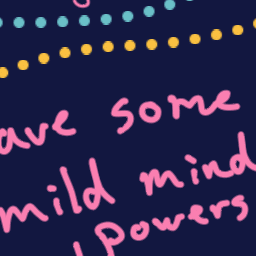 ave some
mild mind
powers